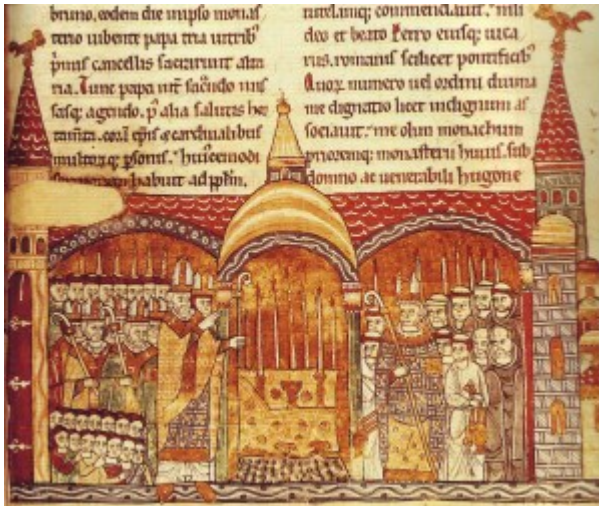 bruno, eodem die inipso monas
terio iubente papa tria intrib'
pmis cancellis sacrarunt alta
ria. Tunc papa int sac̄ndo mis
sasq; agendo. p' alia salutis hor
tam̄ta. corā ep̄is & cardinalibus
multorq; psonis. huiscemodi
habuit ad pplm.
tutelamq; commendauit.
deo et beato Petro eiusq; uica
riis. romanis scilicet pontificib'
Quoꝝ numero uel ordini diuina
me dignatio licet indignum as
sociauit. me olim monachum
prioremq; monasterii huius. sub
domno ac uenerabili hugone